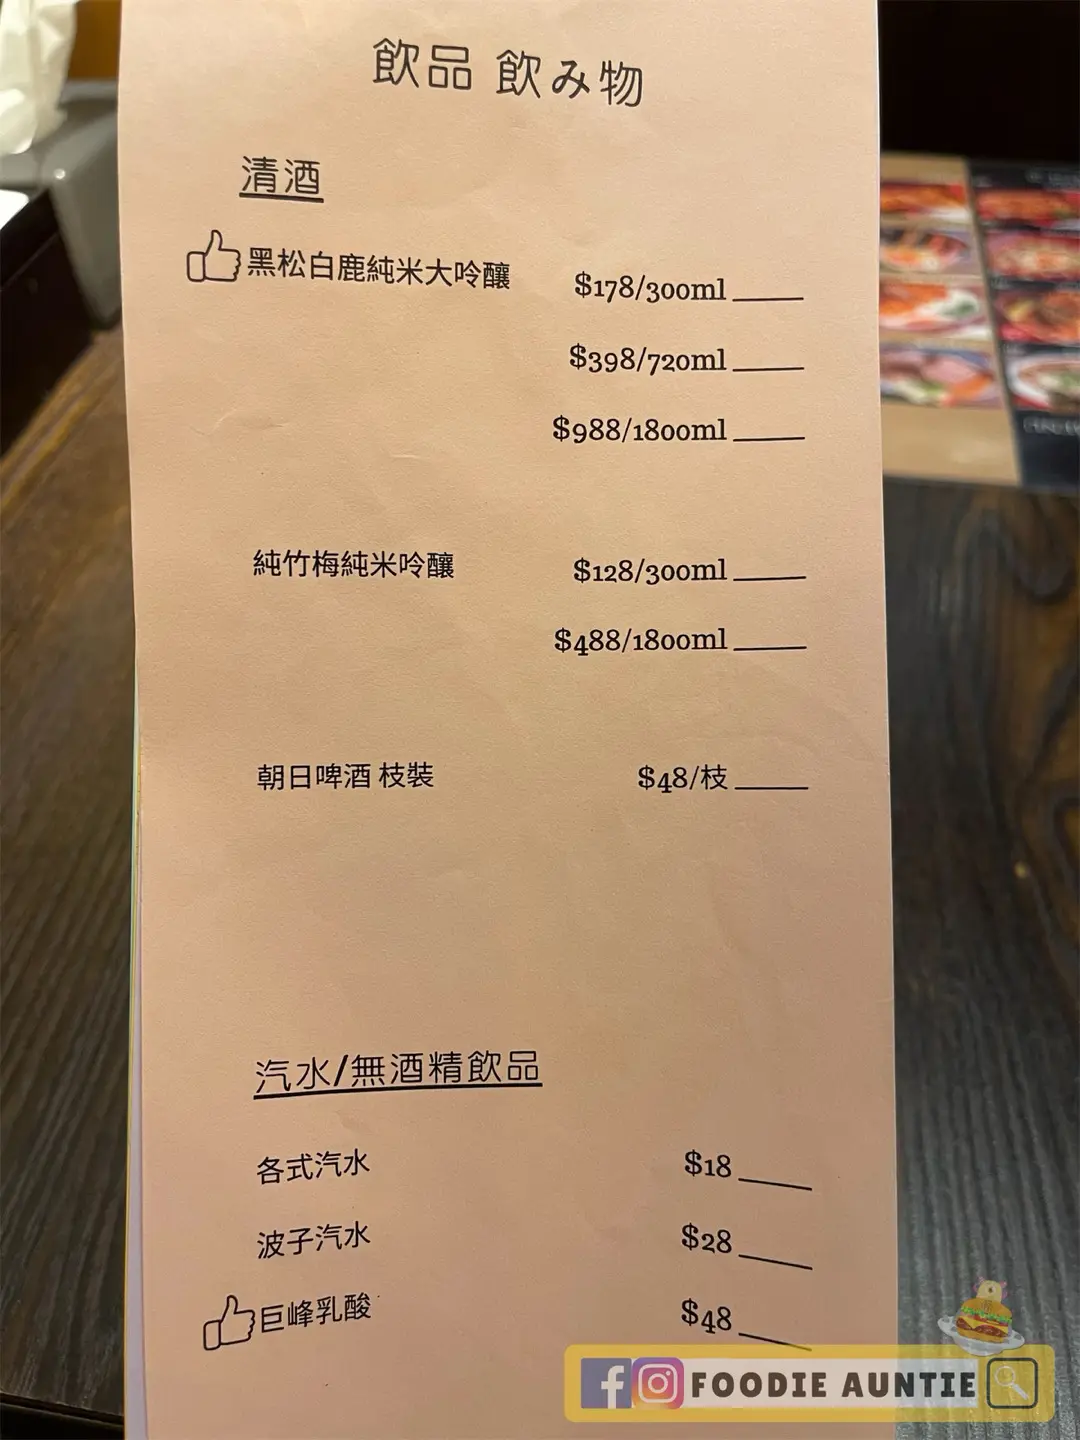 飲品 飲み物
清酒
黑松白鹿純米大吟釀 $178/300ml
$398/720ml
$988/1800ml
純竹梅純米吟釀 $128/300ml
$488/1800ml
朝日啤酒 枝裝 $48/枝
汽水/無酒精飲品
各式汽水 $18
波子汽水 $28
巨峰乳酸 $48
FOODIE AUNTIE